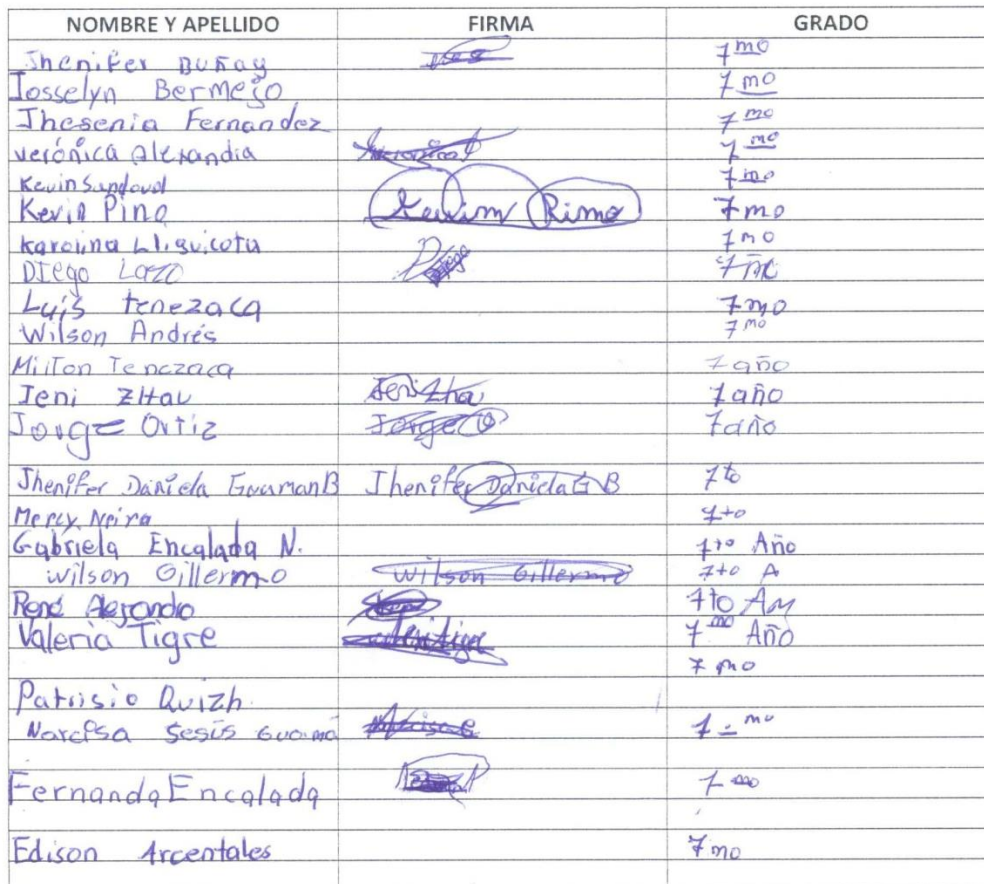 NOMBRE Y APELLIDO FIRMA GRADO
Jhenifer Buñay 7 mo
Josselyn Bermejo 7 mo
Jhesenia Fernandez 7 mo
verónica Alexandia 7 mo
Kevin Sandoval 7 mo
Kevin Pino Kevim Rimo 7 mo
Karolina Lliguicota 7 mo
Diego Lazo 7
Luis tenezaca 7 mo
Wilson Andrés 7 mo
Milton Tenezaca 7 año
Jeni Zhau Jeni Zha 7 año
Jorge Ortiz Jorge O 7 año
Jhenifer Daniela Guaman B Jhenifer Daniela G B 7 to
Mercy Neira 7 to
Gabriela Encalada N. 7 to Año
Wilson Gillermo Wilson Gillermo 7 to A
René 7 to
Valeria Tigre 7 mo Año
7 mo
Patrisio Quizh
Narcisa Jesús Guamá 7 mo
Fernanda Encalada 7 mo
Edison Arcentales 7 mo